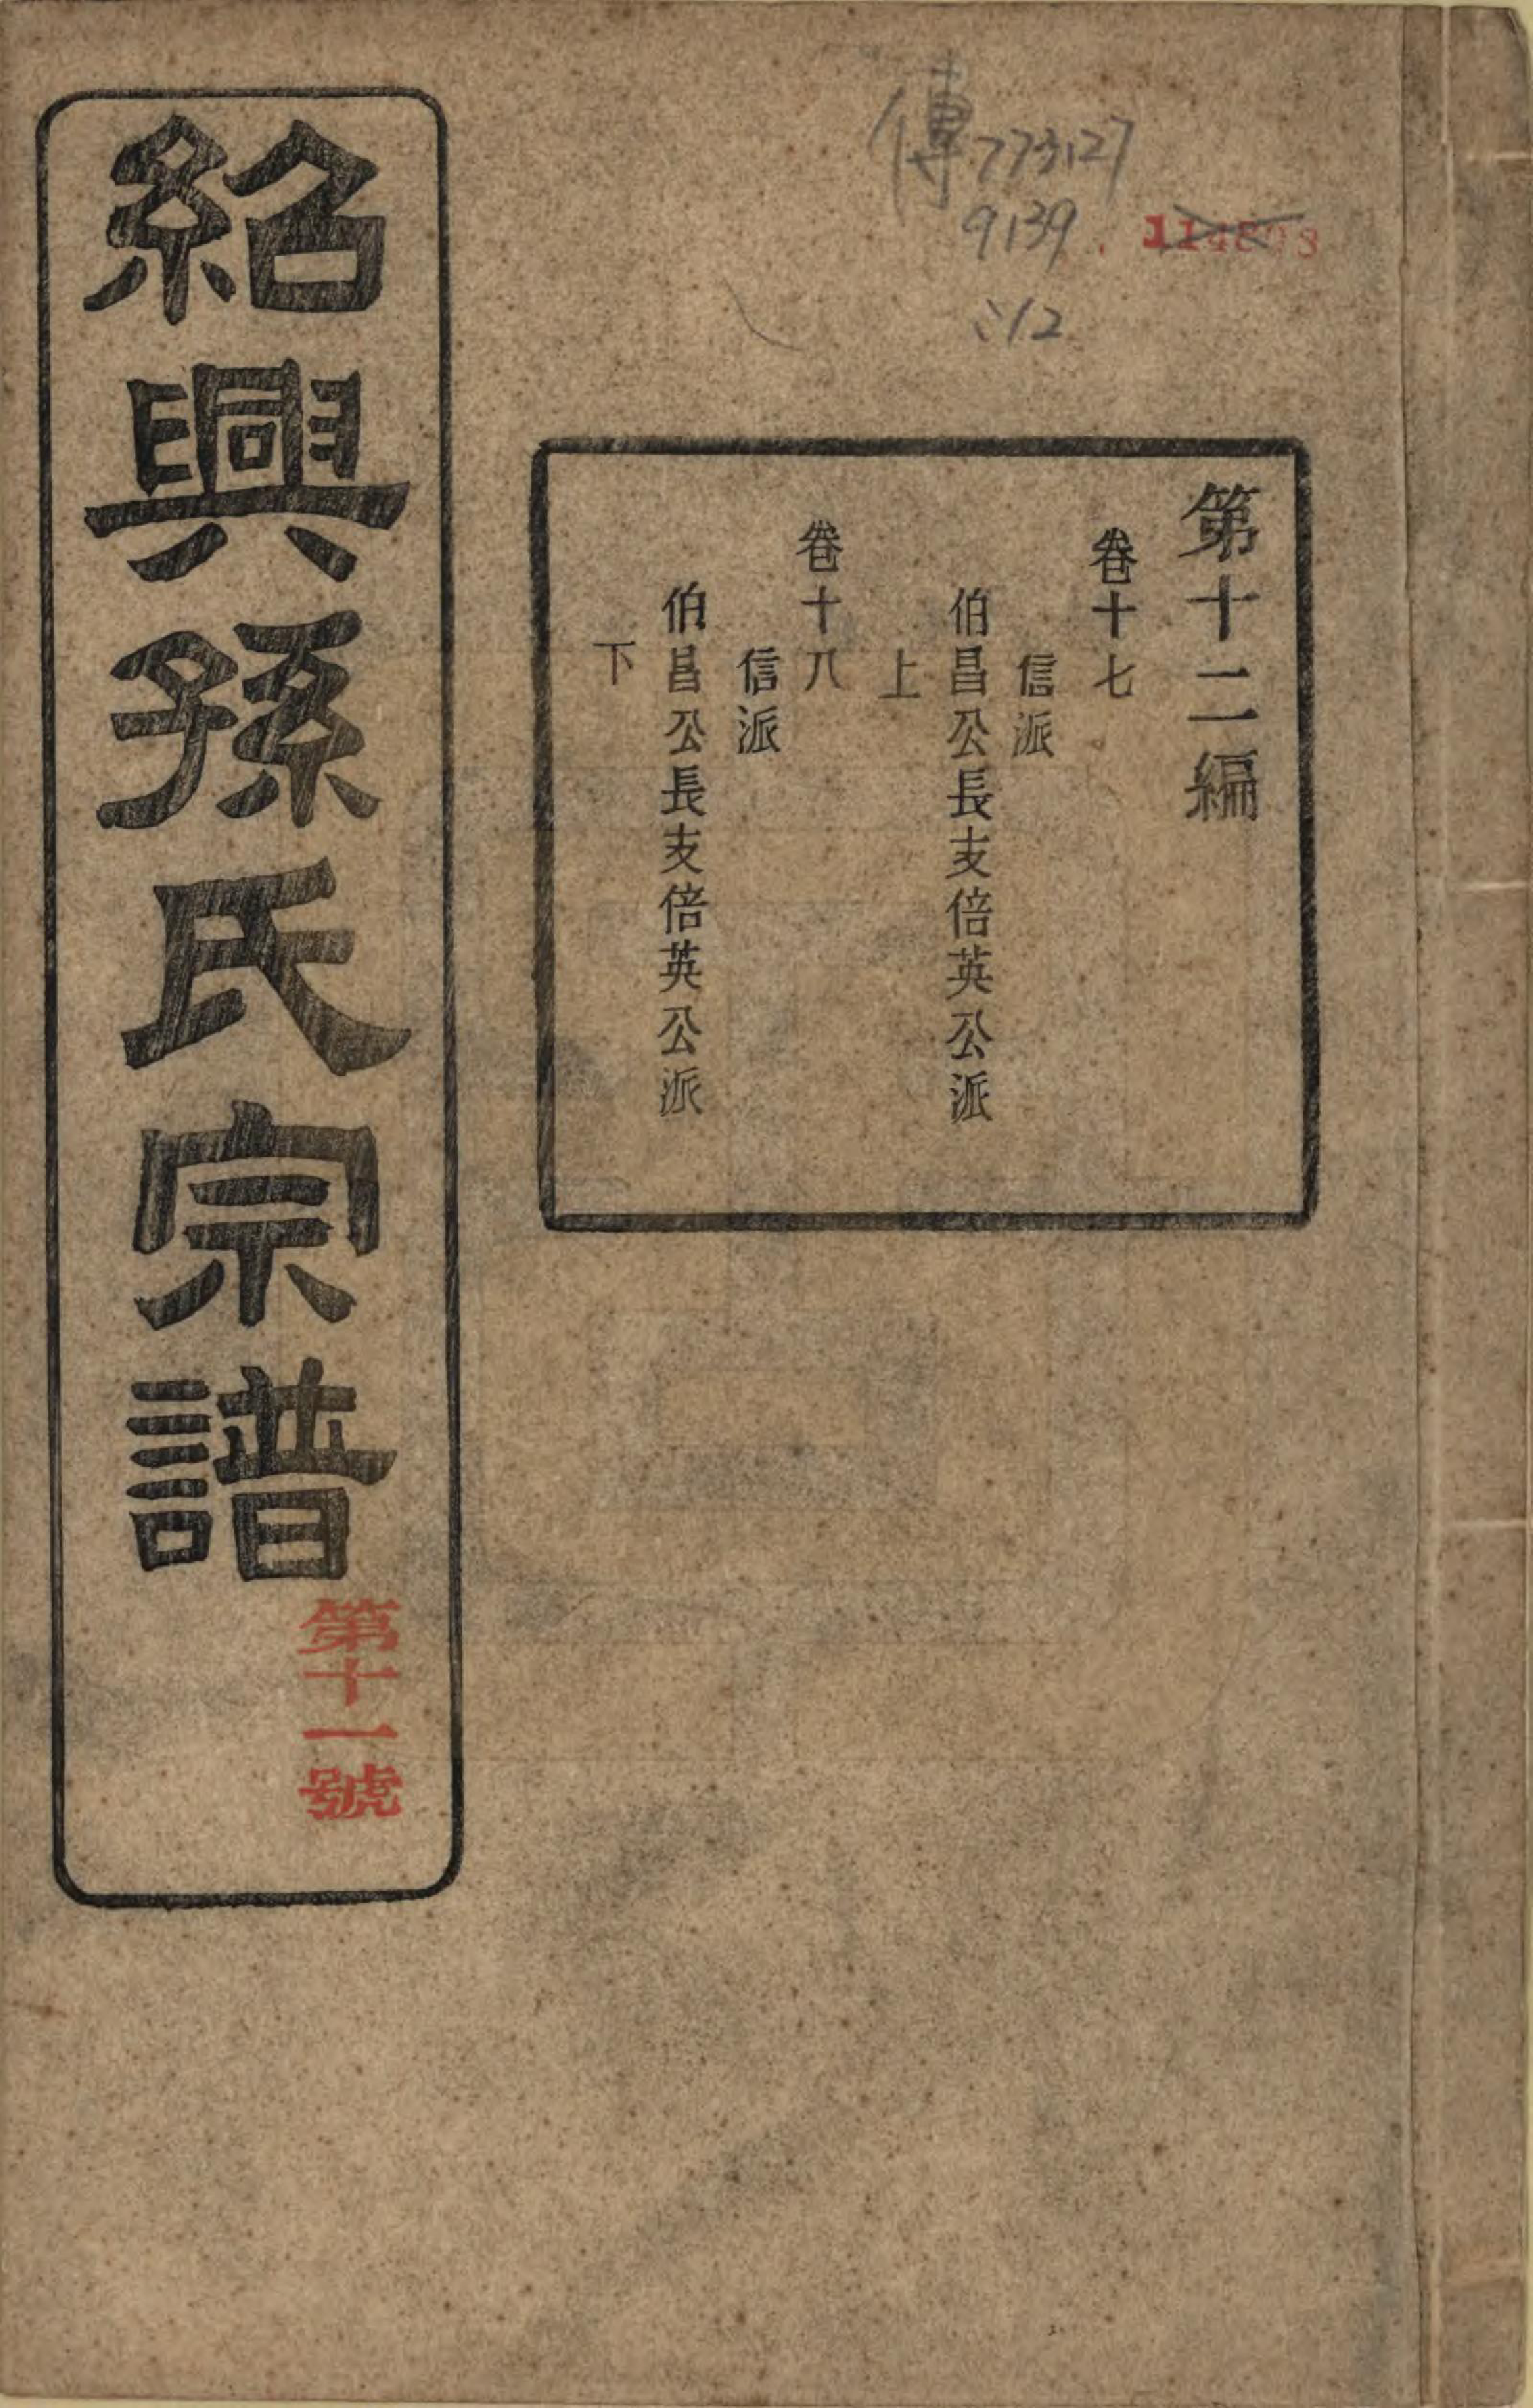 傳 773.127
9139
:12
第十二編
卷十七
信派
伯昌公長支倍英公派
上
卷十八
信派
伯昌公長支倍英公派
下
紹興孫氏宗譜
第十一號